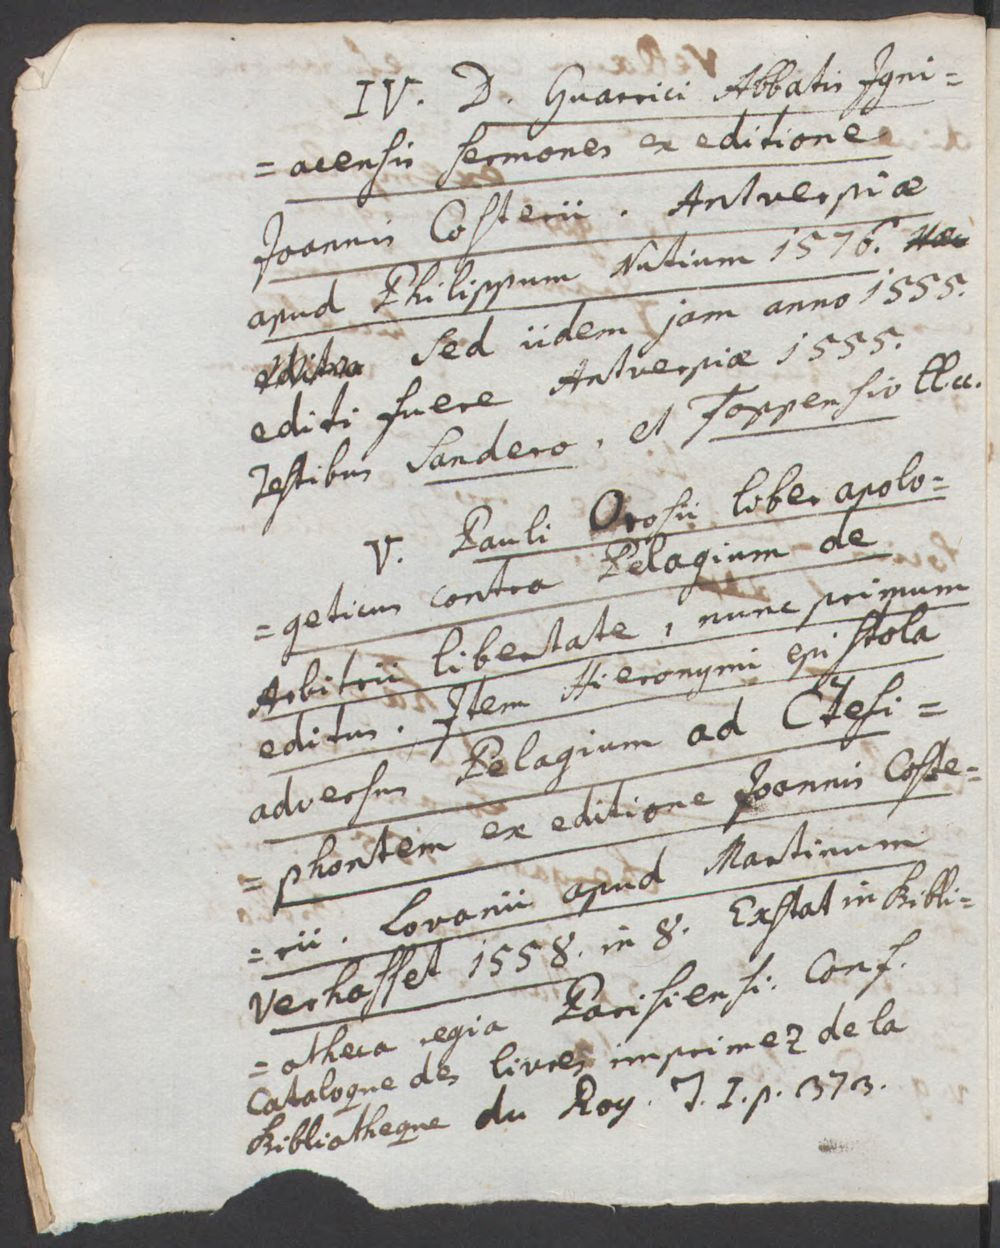 IV. D. Guarrici Abbatis Igni=
=acensis sermones ex editione
Joannis Costerii. Antverpiæ
apud Philippum Nutium 1576.
Sed iidem jam anno 1555.
editi fuere Antverpiæ 1555.
Testibus Sandero, et Foppensio ll.cc.
V. Pauli Orosii liber apolo=
=geticus contra Pelagium de
Arbitrii libertate, nunc primum
editus. Item Hieronymi epistola
adversus Pelagium ad Ctesi=
=phontem ex editione Joannis Coste=
=rii. Lovanii apud Martinum
Verhasselt 1558. in 8. Exstat in Bibli=
=otheca regia Parisiensi. Conf.
Catalogue des livres imprimez de la
Bibliotheque du Roy. T. I. p. 373.